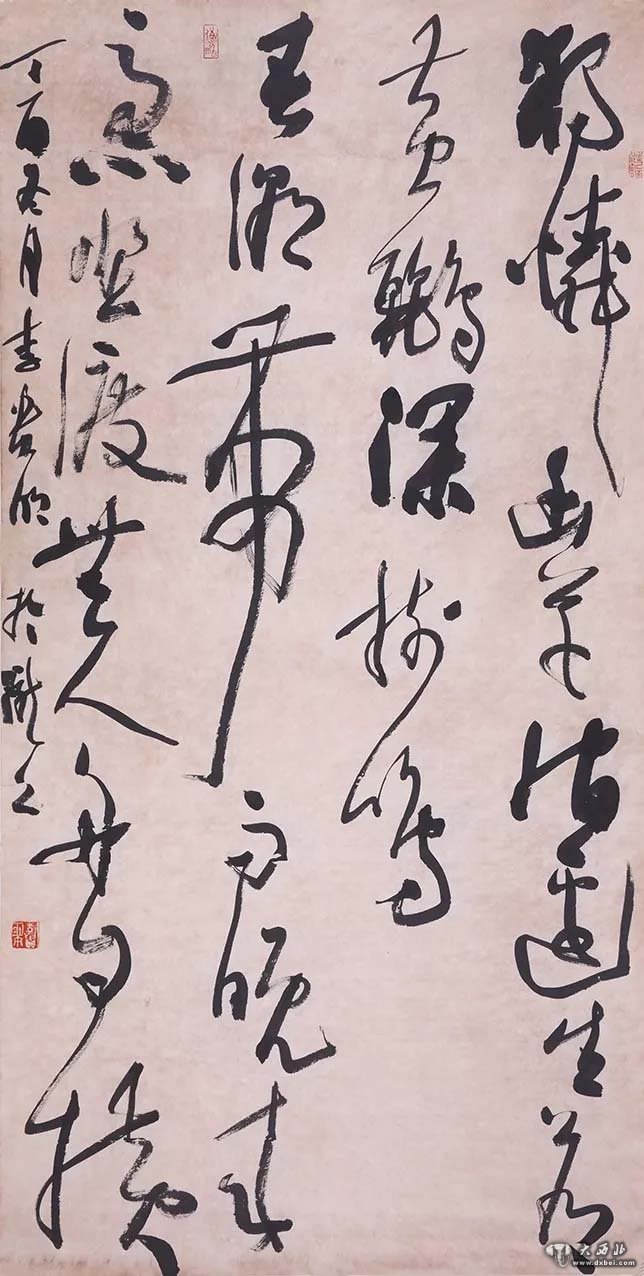 獨憐幽草澗邊生上有
黃鸝深樹鳴
春潮帶雨晚來
急埜渡無人舟自橫
丁酉冬月李
大西北
www.dxbei.com